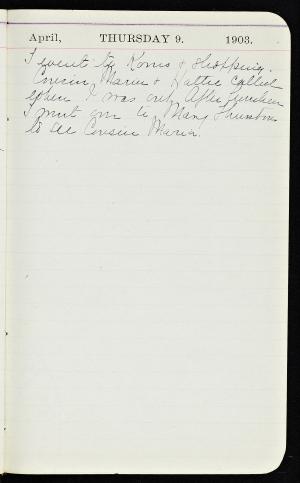 April, THURSDAY 9. 1903.
I went to & shopping.
Cousin Maria & Hattie called
when I was out. After luncheon
I went over to Mary
to see Cousin Maria.